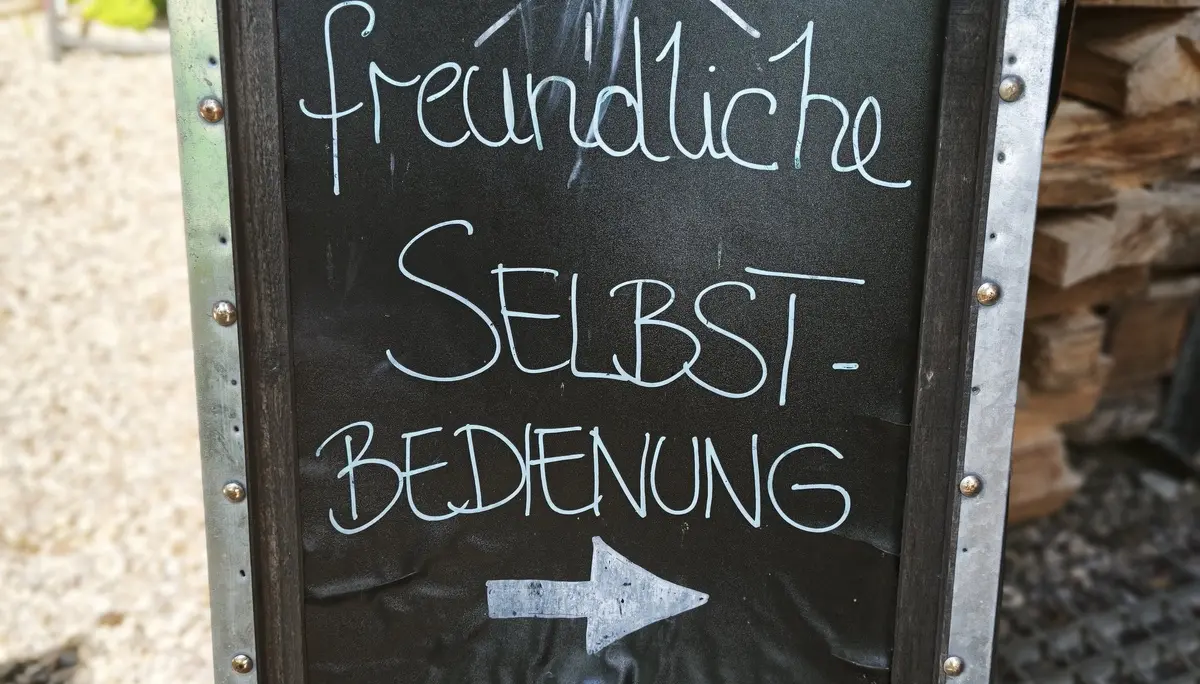 freundliche
SELBST-
BEDIENUNG